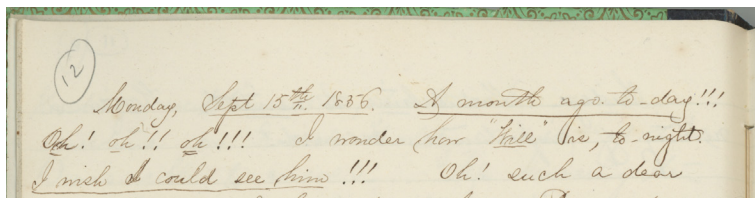 12
Monday, Sept 15th. 1856. A month ago to-day!!!
Oh! oh!! oh!!! I wonder how "Will" is, to-night.
I wish I could see him!!! Oh! such a dear